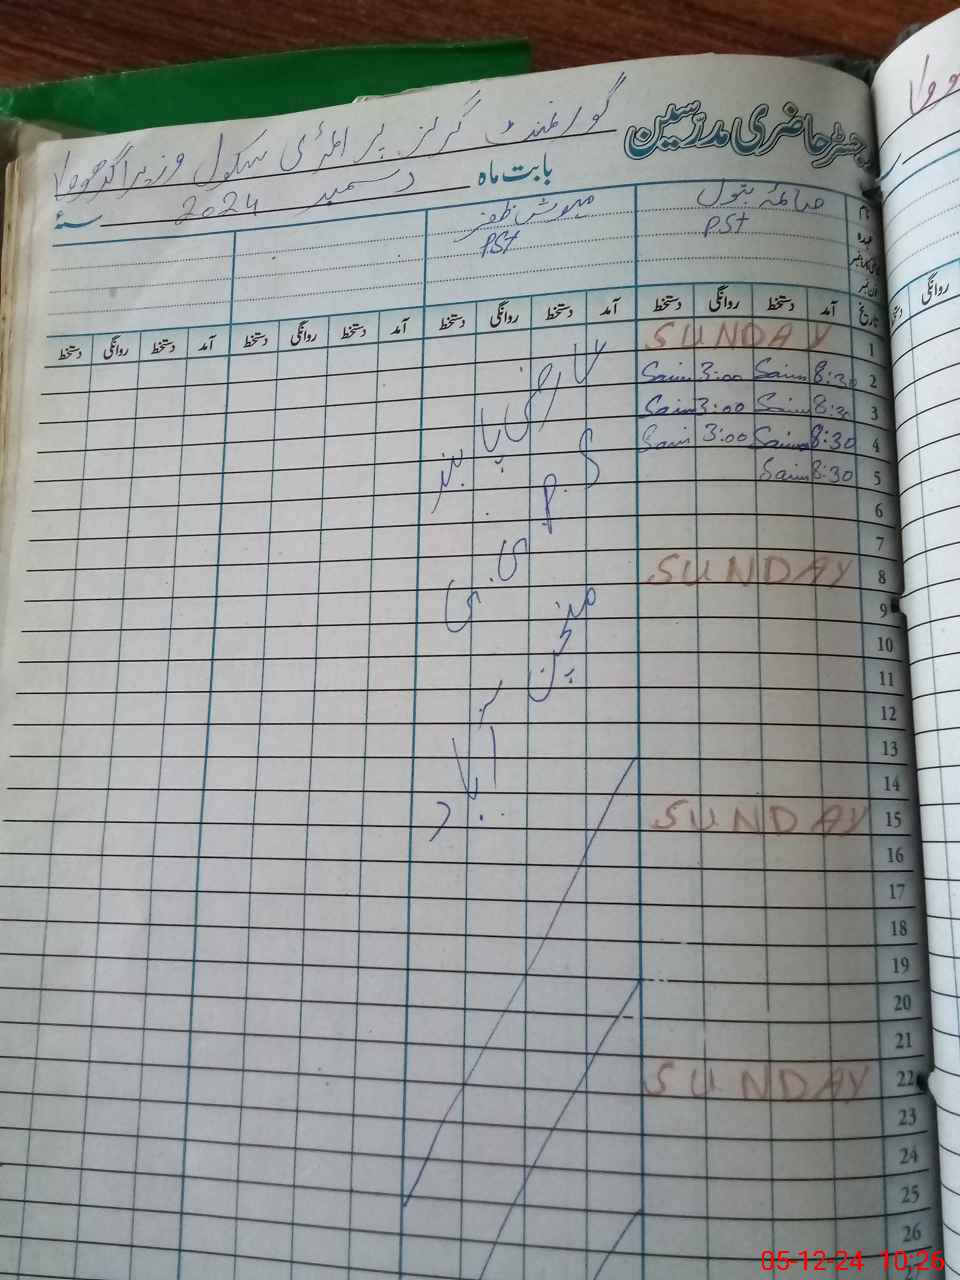 رجسٹر حاضری مدرسین گورنمنٹ گرلز پرائمری سکول وزیرا گدھوولا
بابت ماہ دسمبر 2024 سنہ
نام صائمہ بتول مہوش ظفر
عہدہ PST PST
تاریخ آمد دستخط روانگی دستخط آمد دستخط روانگی دستخط آمد دستخط روانگی دستخط آمد دستخط روانگی دستخط
1 SUNDAY
2 8:30 Saim 3:00 Saim
3 8:30 Saim 3:00 Saim
4 8:30 Saima 3:00 Saim
5 8:30 Saim
6
7
8 SUNDAY
9
10
11
12
13
14
15 SUNDAY
16
17
18
19
20
21
22 SUNDAY
23
24
25
26
عارضی پابند
منچن آباد
روانگی
05-12-24 10:26